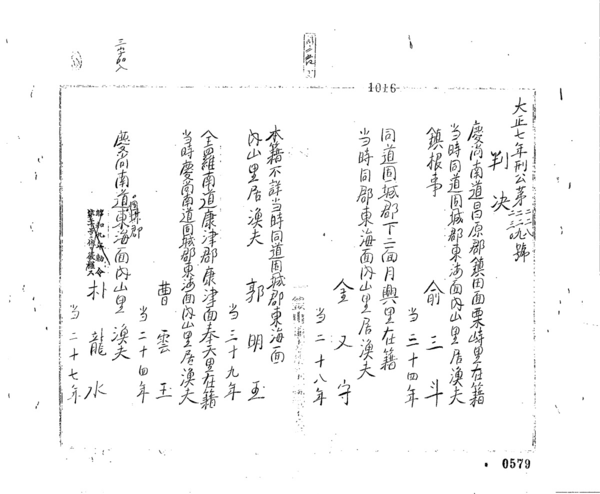 1016
大正七年刑公第二二八 二二九號
判决
慶尚南道昌原郡鎮田面栗峙里在籍
当時同道固城郡東海面內山里居漁夫
鎮根事 俞三斗
当三十四年
同道固城郡下二面月興里在籍
当時同郡東海面內山里居漁夫
金又守
当二十八年
本籍不詳当時同道固城郡東海面
內山里居漁夫 郭明
当三十九年
全羅南道康津郡康津面奉天里在籍
当時慶尚南道固城郡東海面內山里居漁夫
曹雲玉
当二十四年
慶尚南道固城郡東海面內山里 漁夫
朴龍水
当二十七年
0579